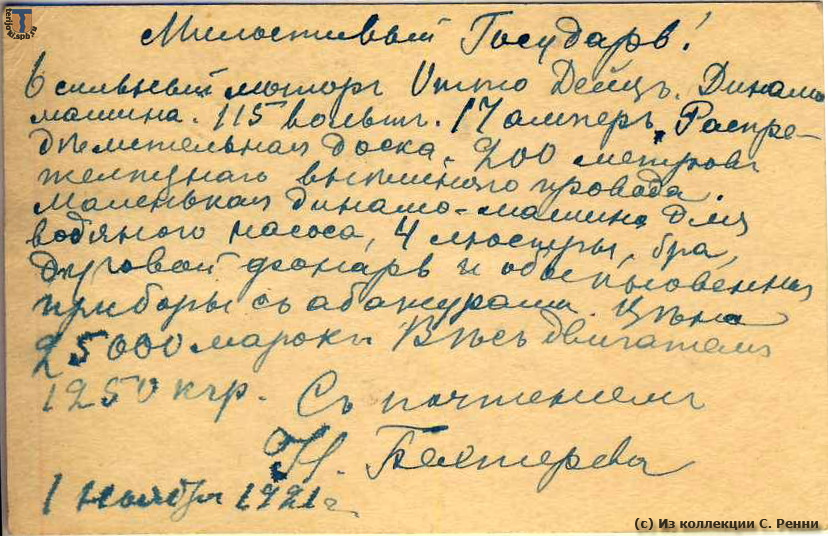 terijoki.spb.ru
Милостивый Государь!
6 сильный моторъ Отто Дейцъ. Динамо
машина. 115 вольт. 17 амперъ. Распре-
дѣлительная доска. 200 метровъ
желѣзнаго внѣшняго провода.
Маленькая динамо-машина для
водяного насоса, 4 люстры, бра,
дуговой фонарь и обыкновенныя
приборы съ абажурами. Цѣна
25000 марокъ Вѣсъ двигателя
1250 кгр. Съ почтеніемъ
Н. Бехтерева
1 Ноября 1921 г.
(c) Из коллекции С. Ренни